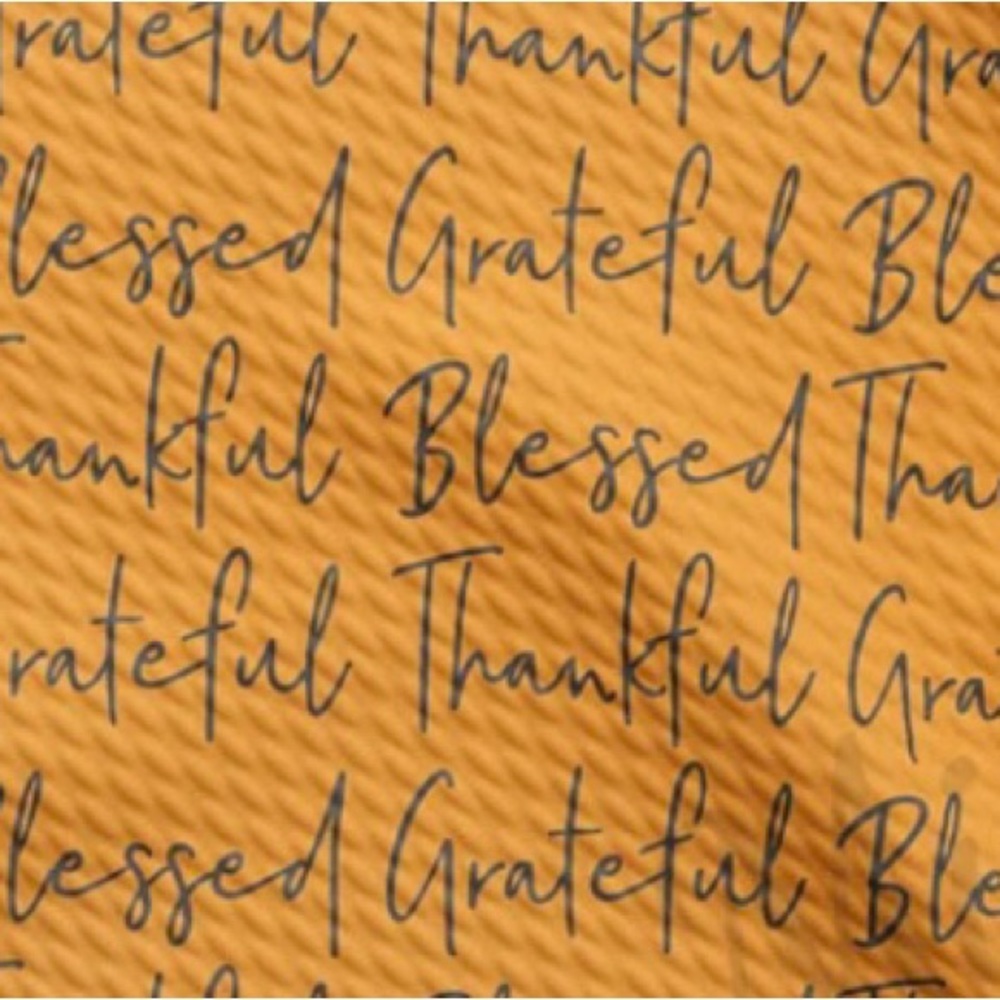 rateful Thankful Gra
lessed Grateful Ble
hankful Blessed Tha
rateful Thankful Gra
lessed Grateful Ble